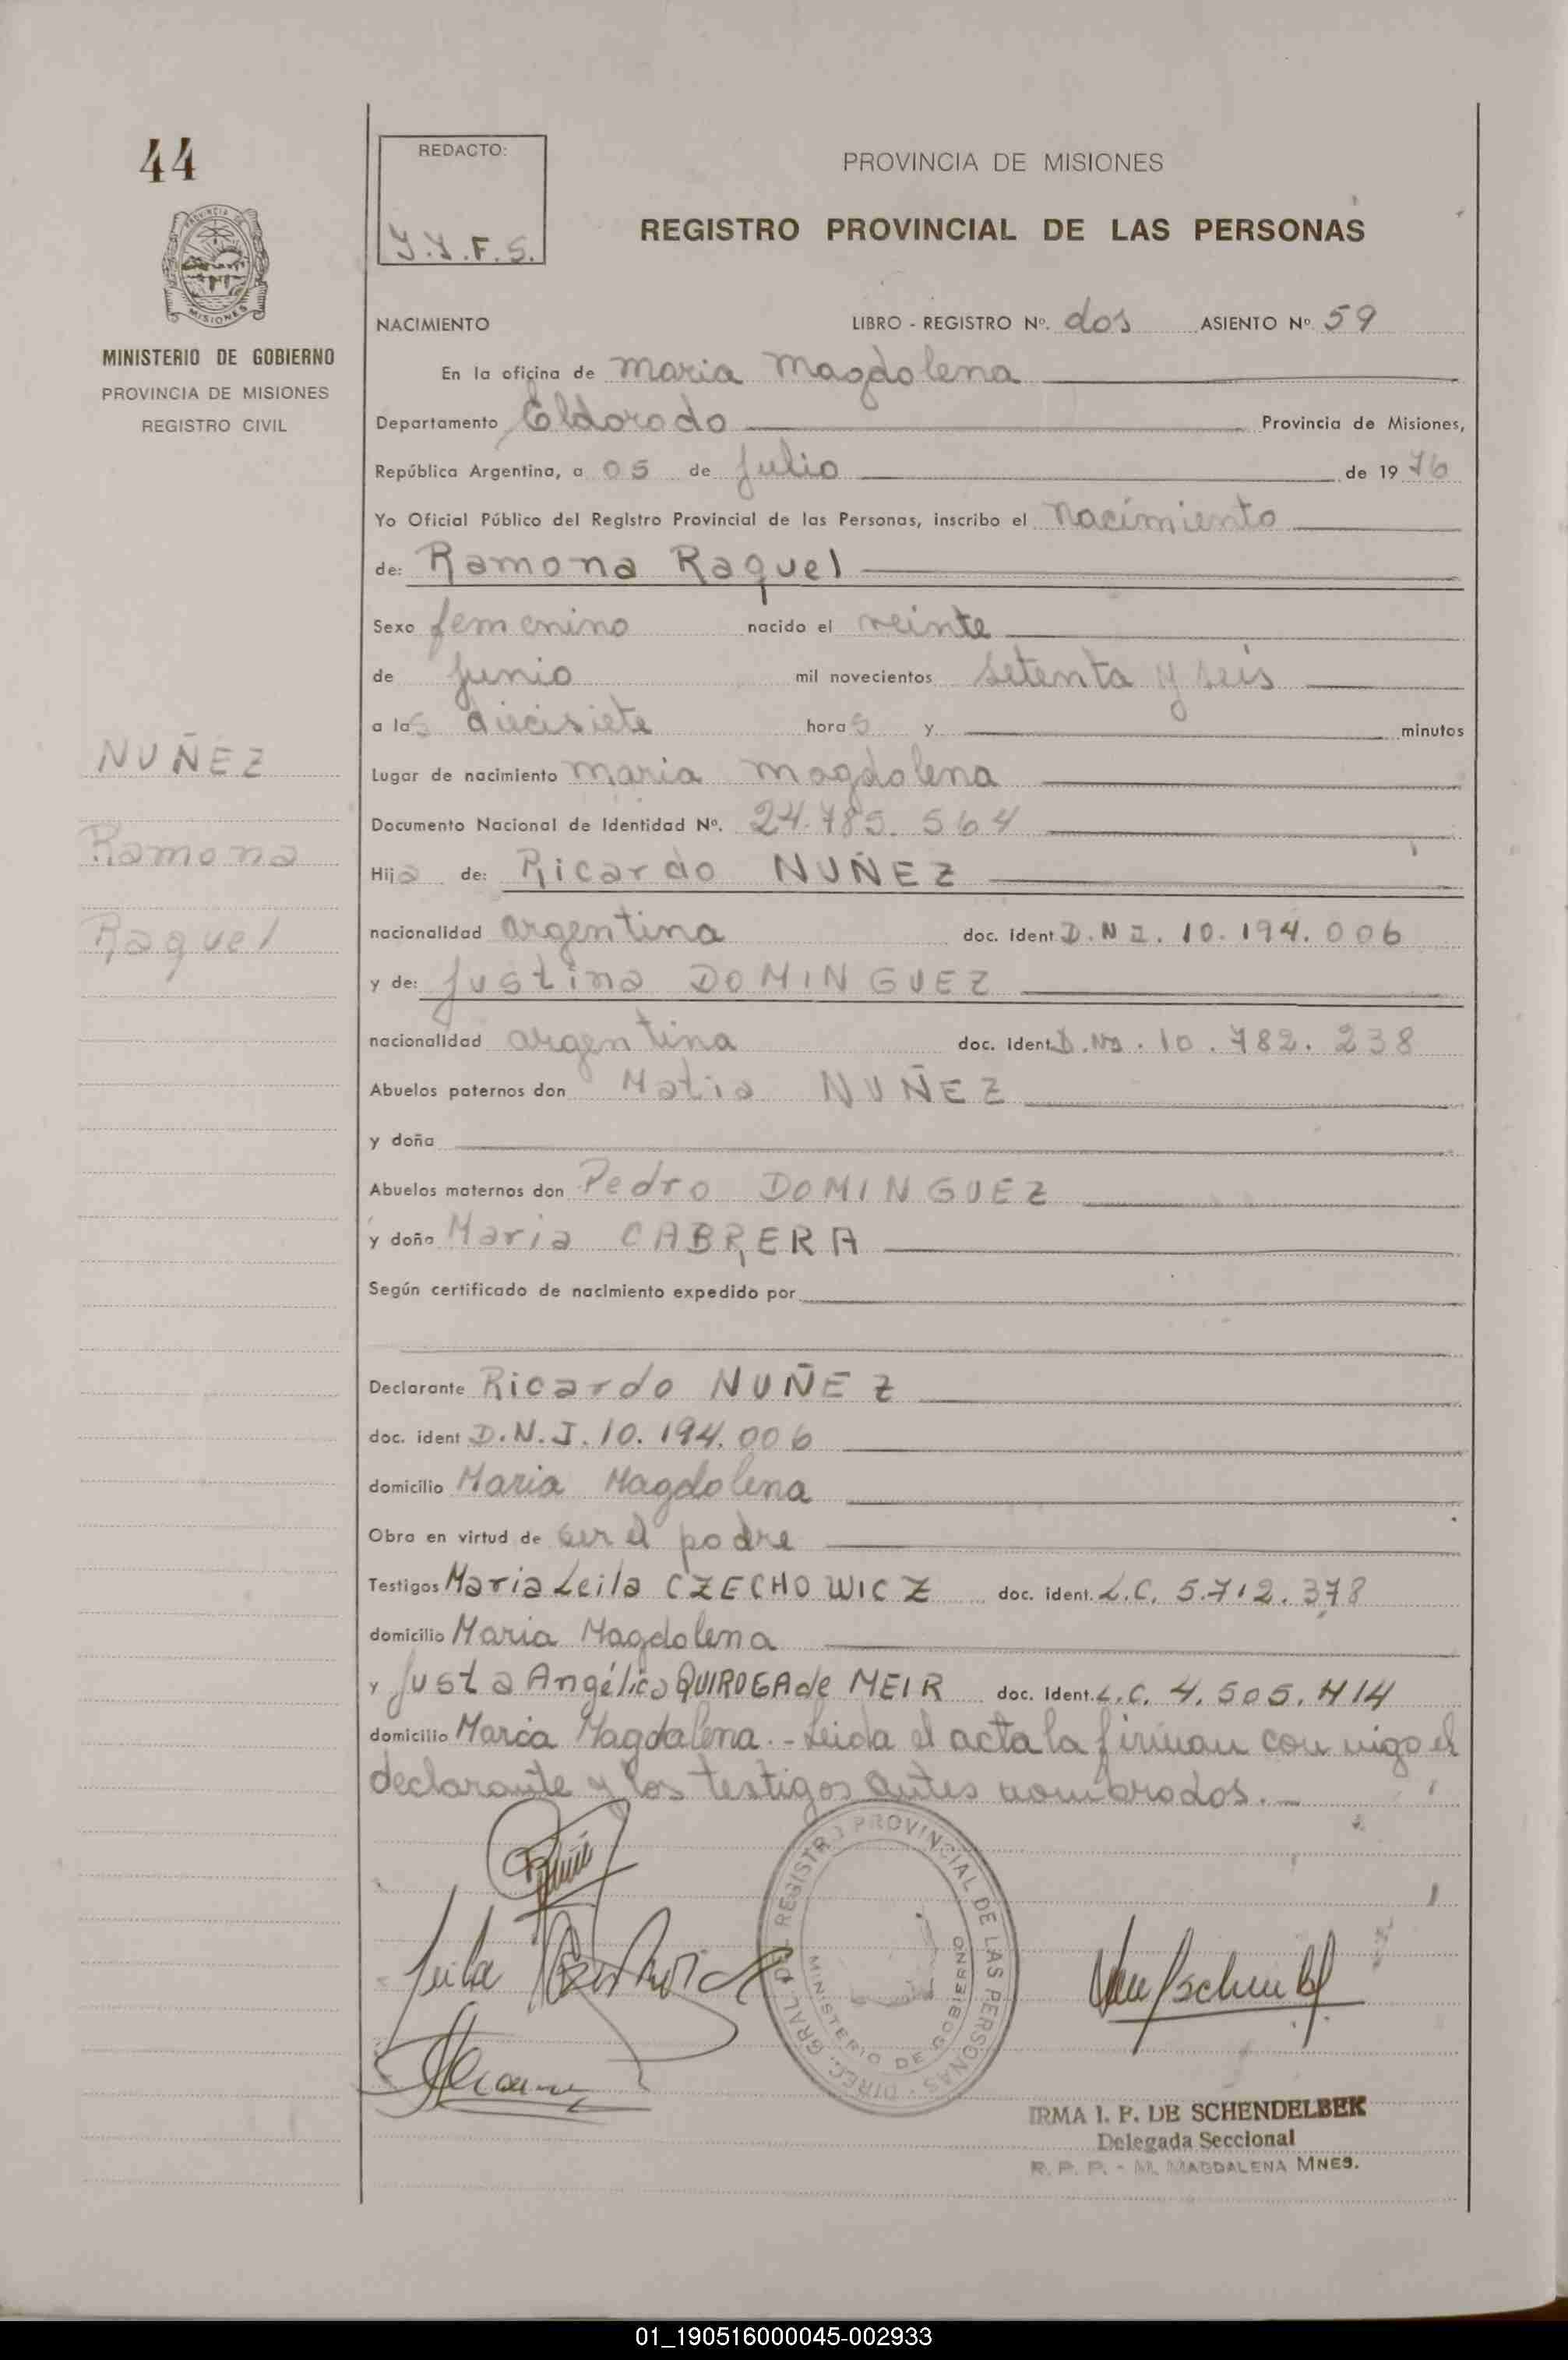 44
PROVINCIA DE MISIONES
MINISTERIO DE GOBIERNO
PROVINCIA DE MISIONES
REGISTRO CIVIL
NUÑEZ
Ramona
Raquel
REDACTO:
Y.Y.F.S.
PROVINCIA DE MISIONES
REGISTRO PROVINCIAL DE LAS PERSONAS
NACIMIENTO LIBRO - REGISTRO Nº. dos ASIENTO Nº 59
En la oficina de Maria Magdalena
Departamento Eldorado Provincia de Misiones,
República Argentina, a 05 de Julio de 1976
Yo Oficial Público del Registro Provincial de las Personas, inscribo el nacimiento
de: Ramona Raquel
Sexo femenino nacido el veinte
de Junio mil novecientos setenta y seis
a las diecisiete horas y minutos
Lugar de nacimiento Maria Magdalena
Documento Nacional de Identidad Nº. 24.785.564
Hija de: Ricardo NUÑEZ
nacionalidad argentina doc. ident D.N.I. 10.194.006
y de: Justina DOMINGUEZ
nacionalidad argentina doc. ident. 10.782.238
Abuelos paternos don Matia NUÑEZ
y doña
Abuelos maternos don Pedro DOMINGUEZ
y doña Maria CABRERA
Según certificado de nacimiento expedido por
Declarante Ricardo NUÑEZ
doc. ident D.N.I. 10.194.006
domicilio Maria Magdalena
Obra en virtud de ser el padre
Testigos Maria Leila CZECHOWICZ doc. ident. L.C. 5.712.378
domicilio Maria Magdalena
y Justa Angélica QUIROGA de MEIR doc. ident. L.C. 4.505.414
domicilio Maria Magdalena.- Leida el acta la firman con migo el
declarante y los testigos antes nombrados.-
DIREC. GRAL. DEL REGISTRO PROVINCIAL DE LAS PERSONAS
MINISTERIO DE GOBIERNO
IRMA I. P. DE SCHENDELBEK
Delegada Seccional
R. P. P. - M. MAGDALENA MNES.
01_190516000045-002933